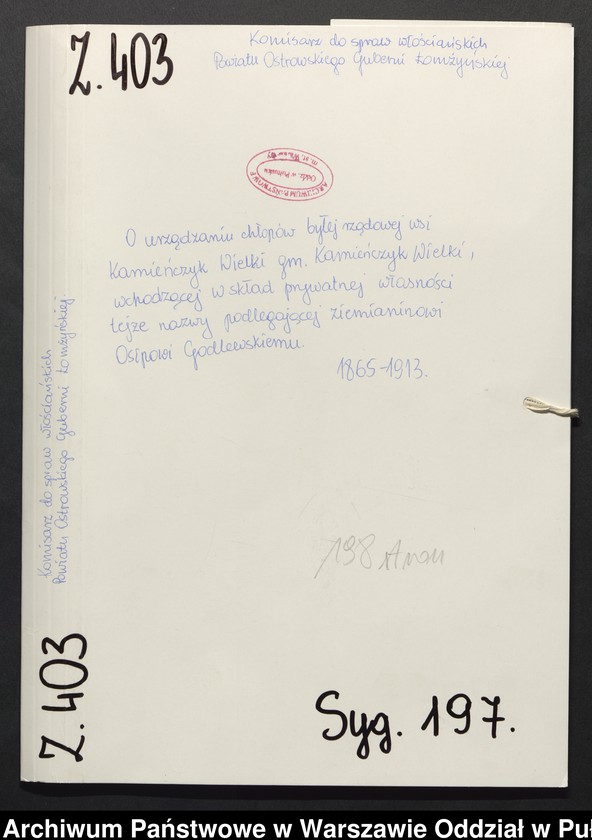 Z. 403
Komisarz do spraw włościańskich
Powiatu Ostrowskiego Guberni Łomżyńskiej
ARCHIWUM PAŃSTWOWE
m. st. Warszawy
Oddz. w Pułtusku
O urządzaniu chłopów byłej rządowej wsi
Kamieńczyk Wielki gm. Kamieńczyk Wielki,
wchodzącej w skład prywatnej własności
tejże nazwy podlegającej ziemianinowi
Osipowi Godlewskiemu.
1865-1913.
Komisarz do spraw włościańskich
Powiatu Ostrowskiego Guberni Łomżyńskiej.
198
Z. 403
Syg. 197.
Archiwum Państwowe w Warszawie Oddział w Puł